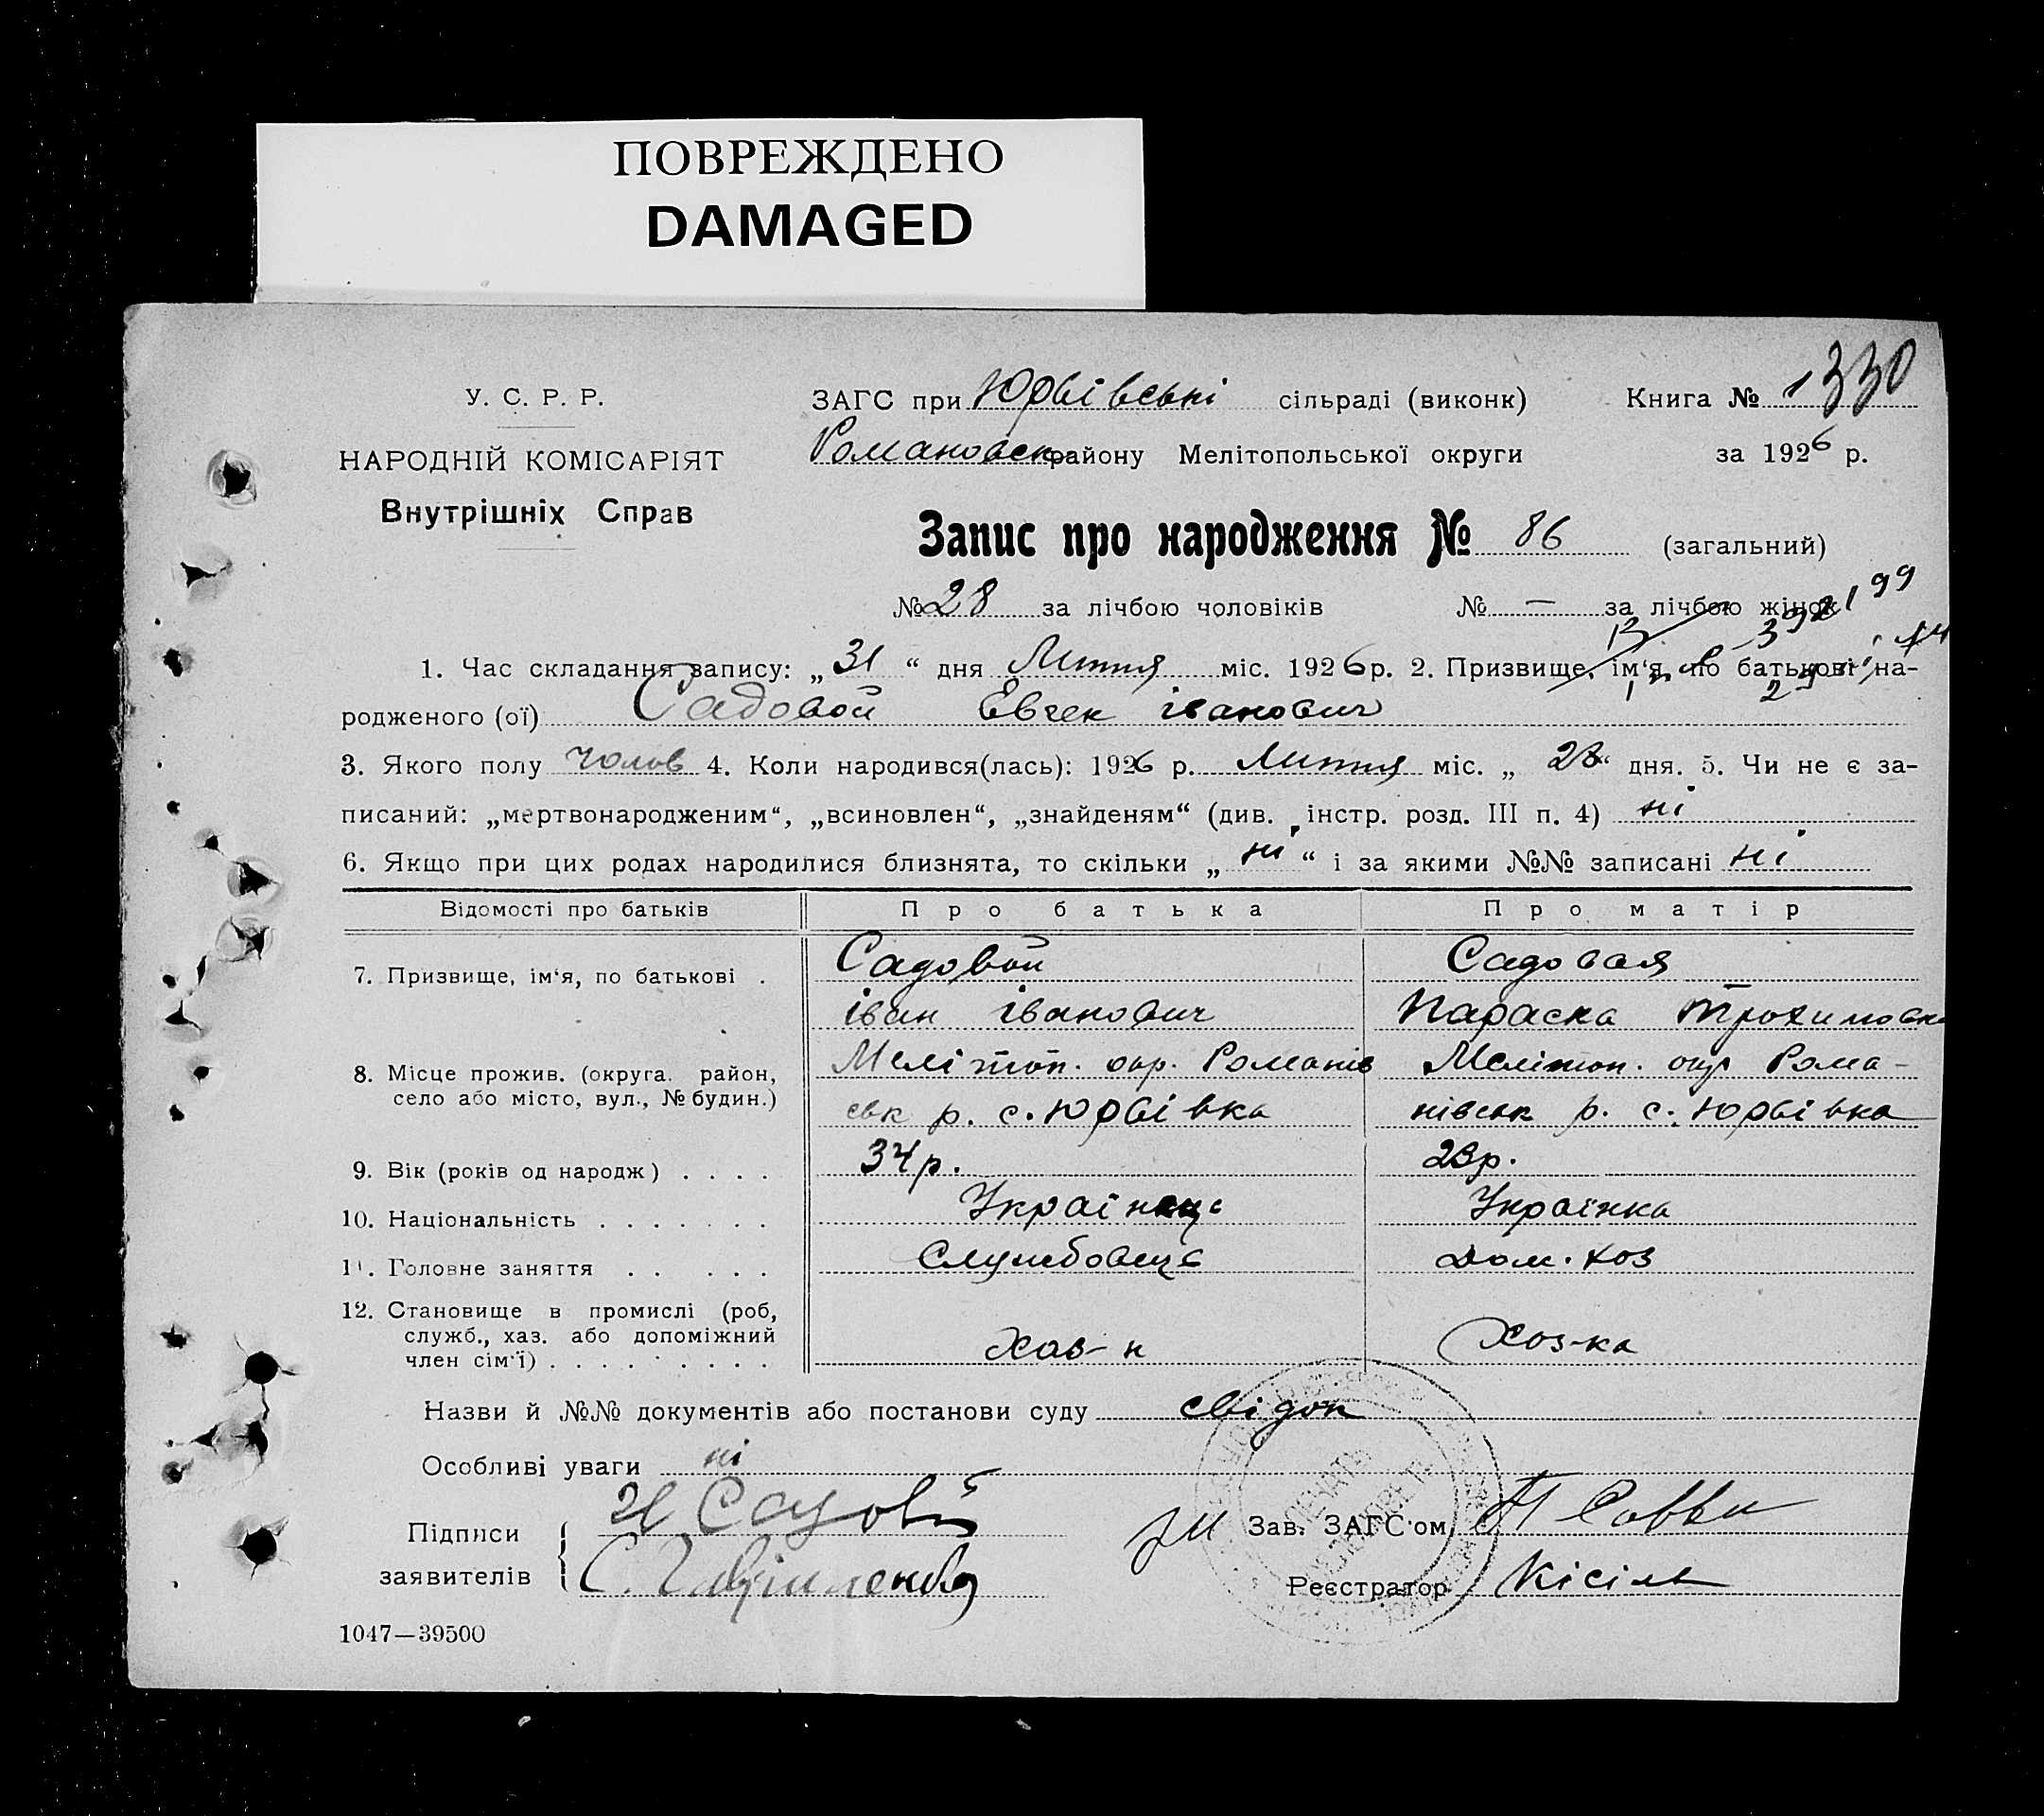 ПОВРЕЖДЕНО
DAMAGED
У. С. Р. Р.
НАРОДНІЙ КОМІСАРІЯТ
Внутрішніх Справ
ЗАГС при Юрвівські сільраді (виконк) Книга № 1330
Романовск району Мелітопольської округи за 1926 р.
Запис про народження № 86 (загальний)
№ 28 за лічбою чоловіків № — за лічбою жінок
1. Час складання запису: „31“ дня Липня міс. 1926 р. 2. Призвище, ім‘я, по батькові на-
родженого (ої) Садовой Евген іванович
3. Якого полу чолов 4. Коли народився(лась): 1926 р. Липня міс. „28“ дня. 5. Чи не є за-
писаний: „мертвонародженим“, „всиновлен“, „знайденям“ (див. інстр. розд. III п. 4) ні
6. Якщо при цих родах народилися близнята, то скільки „ні“ і за якими №№ записані ні
Відомості про батьків Про батька Про матір
7. Призвище, ім‘я, по батькові . Садовой Садовая
іван іванович Параска Трохимовна
8. Місце прожив. (округа. район, село або місто, вул., № будин.) Мелітоп. окр. Романів Мелітоп. окр Рома-
ськ р. с. Юрвівка нівськ р. с. Юрвівка
9. Вік (років од народж) . . . . 34 р. 23 р.
10. Національність . . . . . . . Українець Українка
11. Головне заняття . . . . . Службовець Дом. хоз
12. Становище в промислі (роб,
служб., хаз. або допоміжний
член сім‘ї) . . . . . . . . . Хаз-н Хоз-ка
Назви й №№ документів або постанови суду свідоп
Особливі уваги ні
Підписи И Садовй Зав. ЗАГС‘ом
заявителів С. Реєстратор Кісіль
1047—39500